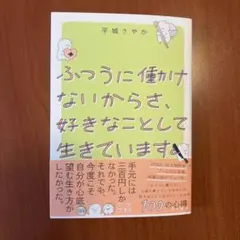 平城さやか
ふつうに働け
ないからさ、
好きなことして
生きています。
手元には
三百円しか
なかった。
それでも
今度こそ
自分が心底
望む生き方が
したかった。
7つの心得